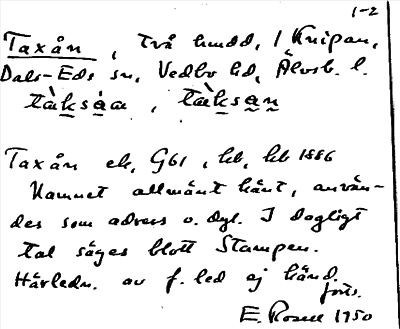 1-2
Taxån, två hmdd, i Knipan,
Dals-Eds sn, Vedbo hd, Älvsb. l.
tàksåa, tàksan
Taxån ek, G61, hd, kb 1886
Namnet allmänt känt, använ-
des som adress o. dyl. I dagligt
tal säges blott Stampen.
Härledn. av f. led ej känd.
forts.
E. Rosell 1950